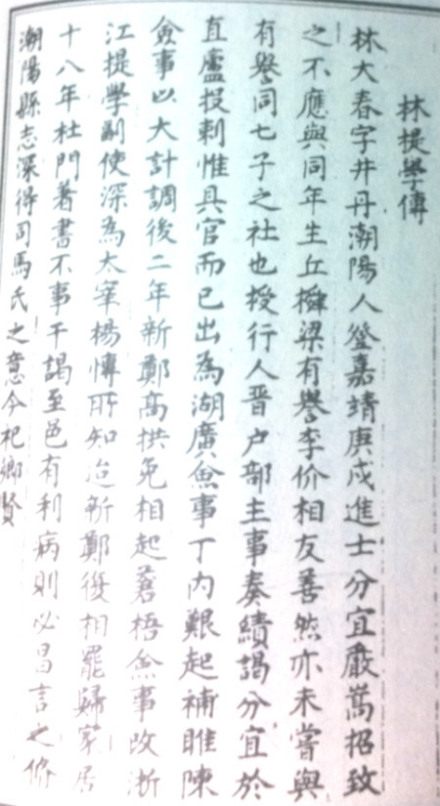 林提學傳
林大春字井丹潮陽人登嘉靖庚戌進士分宜嚴嵩招致
之不應與同年生丘橓梁有譽李价相友善然亦未嘗與
有譽同七子之社也授行人晋户部主事奏績謁分宜於
直廬投刺惟具官而已出為湖廣僉事丁内艱起補睢陳
僉事以大計調後二年新鄭高拱免相起蒼梧僉事改浙
江提學副使深為太宰楊愽所知迨新鄭復相罷歸家居
十八年杜門著書不事干謁至邑有利病則必昌言之脩
潮陽縣志深得司馬氏之意今祀鄉賢